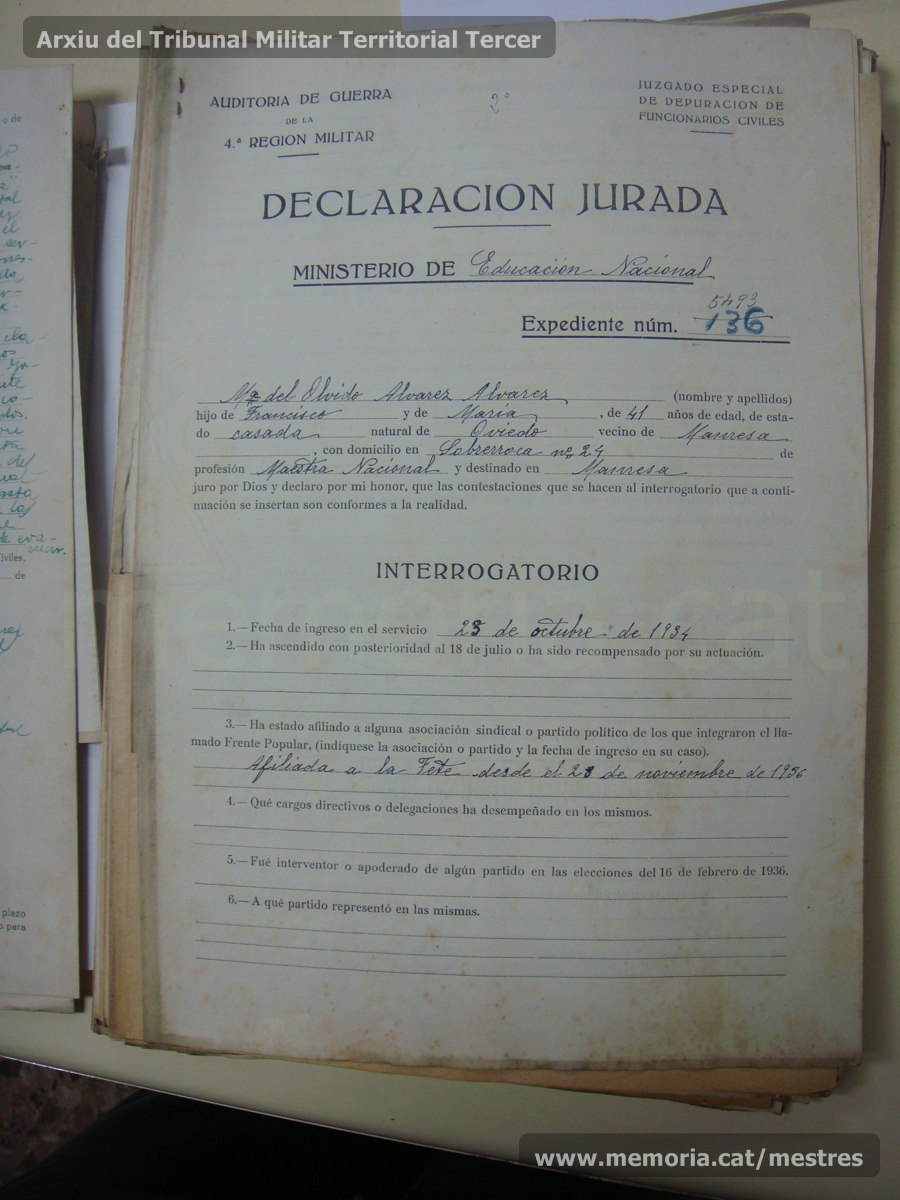 Arxiu del Tribunal Militar Territorial Tercer
AUDITORIA DE GUERRA
DE LA
4.ª REGION MILITAR
2º
JUZGADO ESPECIAL
DE DEPURACION DE
FUNCIONARIOS CIVILES
DECLARACION JURADA
MINISTERIO DE Educación Nacional
5493
Expediente núm. 136
Mª del Olvido Alvarez Alvarez (nombre y apellidos)
hijo de Francisco y de María, de 41 años de edad, de esta-
do casada natural de Oviedo vecino de Manresa
, con domicilio en Sobrerroca nº 24 de
profesión Maestra Nacional y destinado en Manresa
juro por Dios y declaro por mi honor, que las contestaciones que se hacen al interrogatorio que a conti-
nuación se insertan son conformes a la realidad.
INTERROGATORIO
1.—Fecha de ingreso en el servicio 23 de octubre de 1934
2.—Ha ascendido con posterioridad al 18 de julio o ha sido recompensado por su actuación.
3.—Ha estado afiliado a alguna asociación sindical o partido político de los que integraron el lla-
mado Frente Popular, (indíquese la asociación o partido y la fecha de ingreso en su caso).
Afiliada a la Fete desde el 23 de noviembre de 1936
4.—Qué cargos directivos o delegaciones ha desempeñado en los mismos.
5.—Fué interventor o apoderado de algún partido en las elecciones del 16 de febrero de 1936.
6.—A qué partido representó en las mismas.
www.memoria.cat/mestres